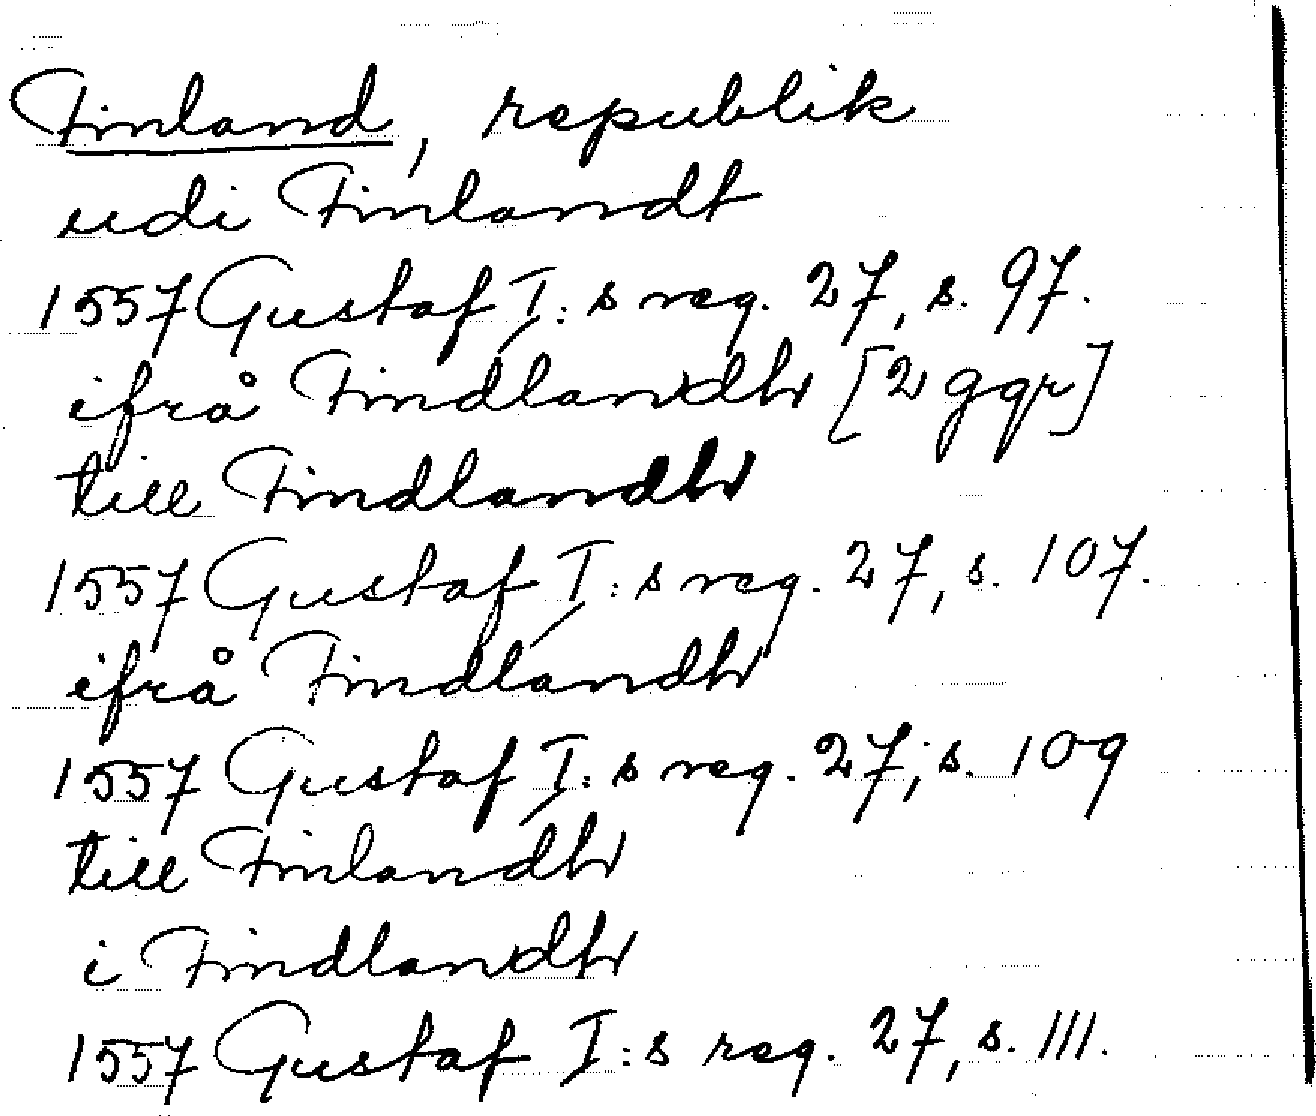 Finland, republik
udi Finlandt
1557 Gustaf I:s reg. 27, s. 97.
ifrå Findlandh [2 ggr]
till Findlandh
1557 Gustaf I:s reg. 27, s. 107.
ifrå Findlandh
1557 Gustaf I:s reg. 27, s. 109
till Finlandh
i Findlandh
1557 Gustaf I:s reg. 27, s. 111.